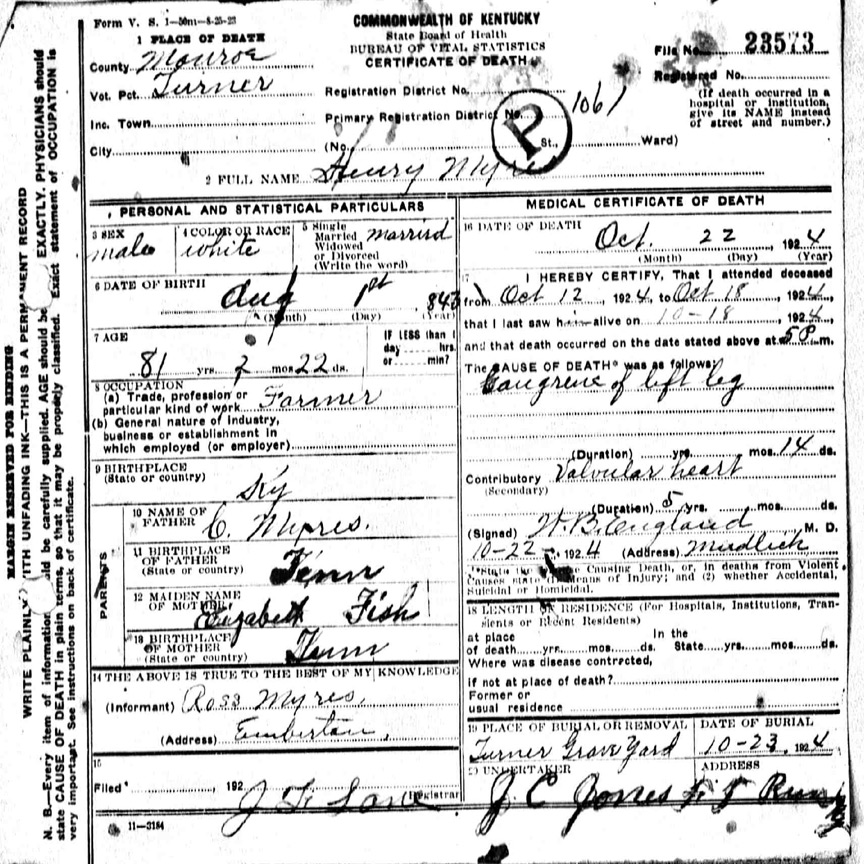 Form V. S. 1—50m—8-25-23
COMMONWEALTH OF KENTUCKY
State Board of Health
BUREAU OF VITAL STATISTICS
CERTIFICATE OF DEATH
File No. 23573
Registered No.
(If death occurred in a hospital or institution, give its NAME instead of street and number.)
1 PLACE OF DEATH
County Monroe
Vot. Pct. Turner
Inc. Town
City
Registration District No.
Primary Registration District No. 1061
P
(No. St., Ward)
2 FULL NAME Henry Myres
PERSONAL AND STATISTICAL PARTICULARS
3 SEX male
4 COLOR OR RACE white
5 Single Married Widowed or Divorced (Write the word) Married
6 DATE OF BIRTH Aug 1st 843
(Month) (Day) (Year)
7 AGE 81 yrs. 2 mos 22 ds.
IF LESS than 1 day hrs. or min?
8 OCCUPATION
(a) Trade, profession or particular kind of work Farmer
(b) General nature of industry, business or establishment in which employed (or employer)
9 BIRTHPLACE
(State or country) Ky
PARENTS
10 NAME OF FATHER C. Myres.
11 BIRTHPLACE OF FATHER
(State or country) Tenn
12 MAIDEN NAME OF MOTHER Elizabeth Fish
13 BIRTHPLACE OF MOTHER
(State or country) Tenn
14 THE ABOVE IS TRUE TO THE BEST OF MY KNOWLEDGE
(Informant) Ross Myres,
(Address) Emberton,
15
Filed 192
Registrar
11—3184
MEDICAL CERTIFICATE OF DEATH
16 DATE OF DEATH Oct. 22, 1924
(Month) (Day) (Year)
17 I HEREBY CERTIFY, That I attended deceased
from Oct 12, 1924, to Oct 18, 1924,
that I last saw him alive on 10-18, 1924,
and that death occurred on the date stated above at 5 P. m.
The CAUSE OF DEATH* was as follows:
Gangrene of left leg
(Duration) yrs. mos. 14 ds.
Contributory Valvular heart
(Secondary)
(Duration) 5 yrs. mos. ds.
(Signed) W. B. England M. D.
10-22, 1924 (Address) Mudlick
*State the Causing Death, or, in deaths from Violent Causes state (1) Means of Injury; and (2) whether Accidental, Suicidal or Homicidal.
18 LENGTH OF RESIDENCE (For Hospitals, Institutions, Transients or Recent Residents)
at place of death yrs. mos. ds. In the State yrs. mos. ds.
Where was disease contracted, if not at place of death?
Former or usual residence
19 PLACE OF BURIAL OR REMOVAL Turner Grave Yard
DATE OF BURIAL 10-23, 1924
20 UNDERTAKER J C Jones
ADDRESS
MARGIN RESERVED FOR BINDING
WRITE PLAINLY WITH UNFADING INK—THIS IS A PERMANENT RECORD
N. B.—Every item of information should be carefully supplied. AGE should be EXACTLY. PHYSICIANS should
state CAUSE OF DEATH in plain terms, so that it may be properly classified. Exact statement of OCCUPATION is
very important. See instructions on back of certificate.